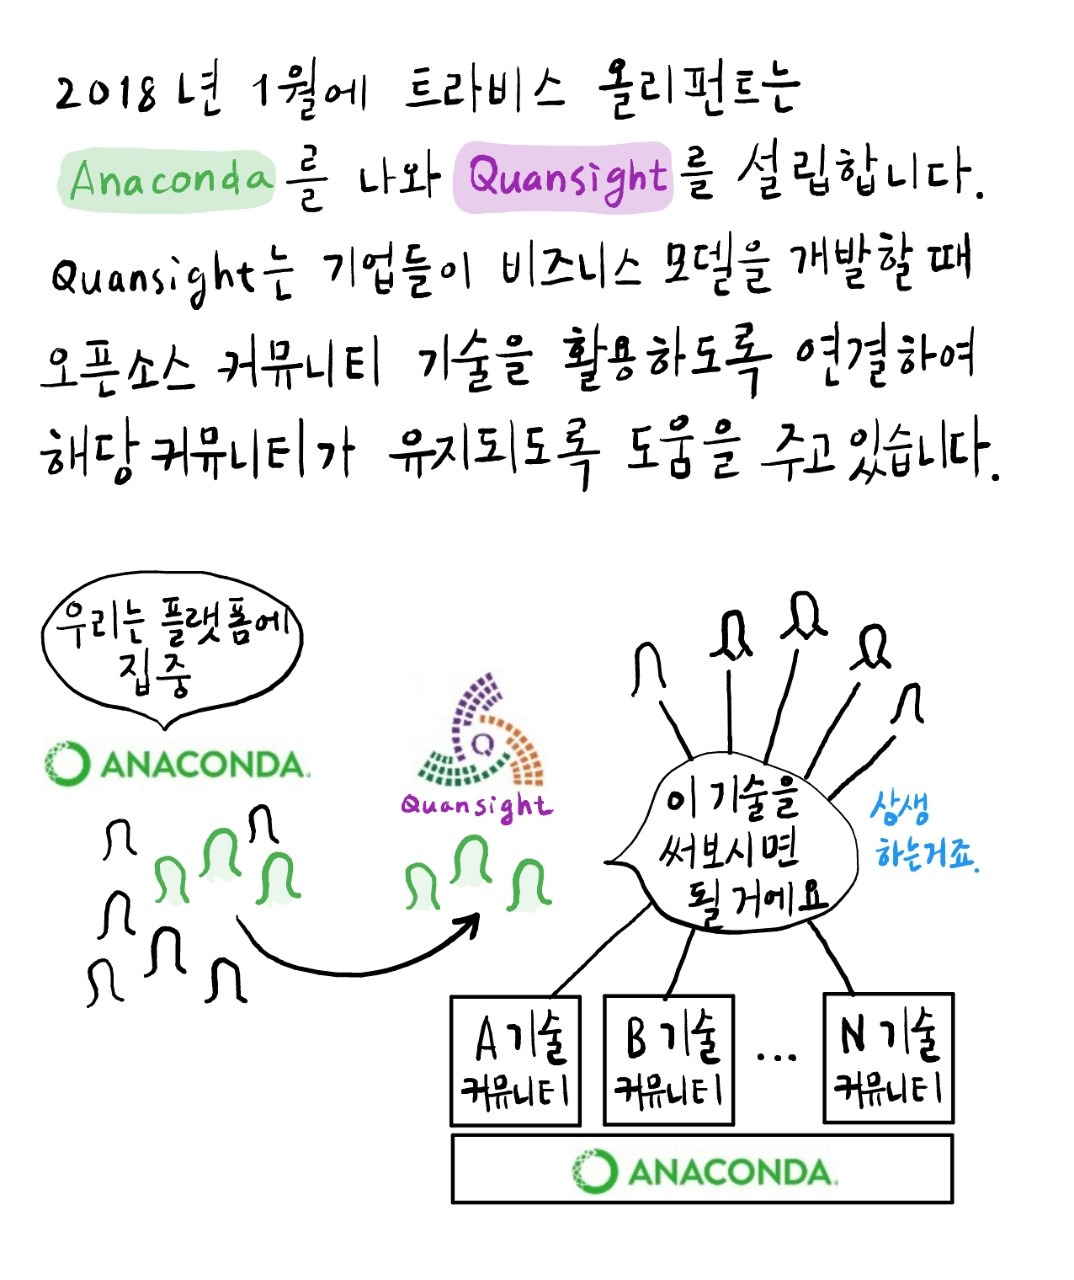 2018년 1월에 트라비스 올리펀트는
Anaconda를 나와 Quansight를 설립합니다.
Quansight는 기업들이 비즈니스 모델을 개발할 때
오픈소스 커뮤니티 기술을 활용하도록 연결하여
해당 커뮤니티가 유지되도록 도움을 주고 있습니다.
우리는 플랫폼에
집중
ANACONDA.
Q
Quansight
이 기술을
써보시면
될 거에요
상생
하는거죠.
A 기술
커뮤니티
B 기술
커뮤니티
...
N 기술
커뮤니티
ANACONDA.